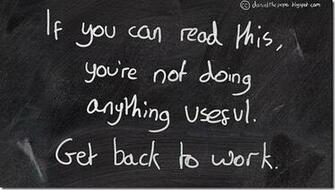 © danielthepope.blogspot.com
If you can read this,
you're not doing
anything useful.
Get back to work.